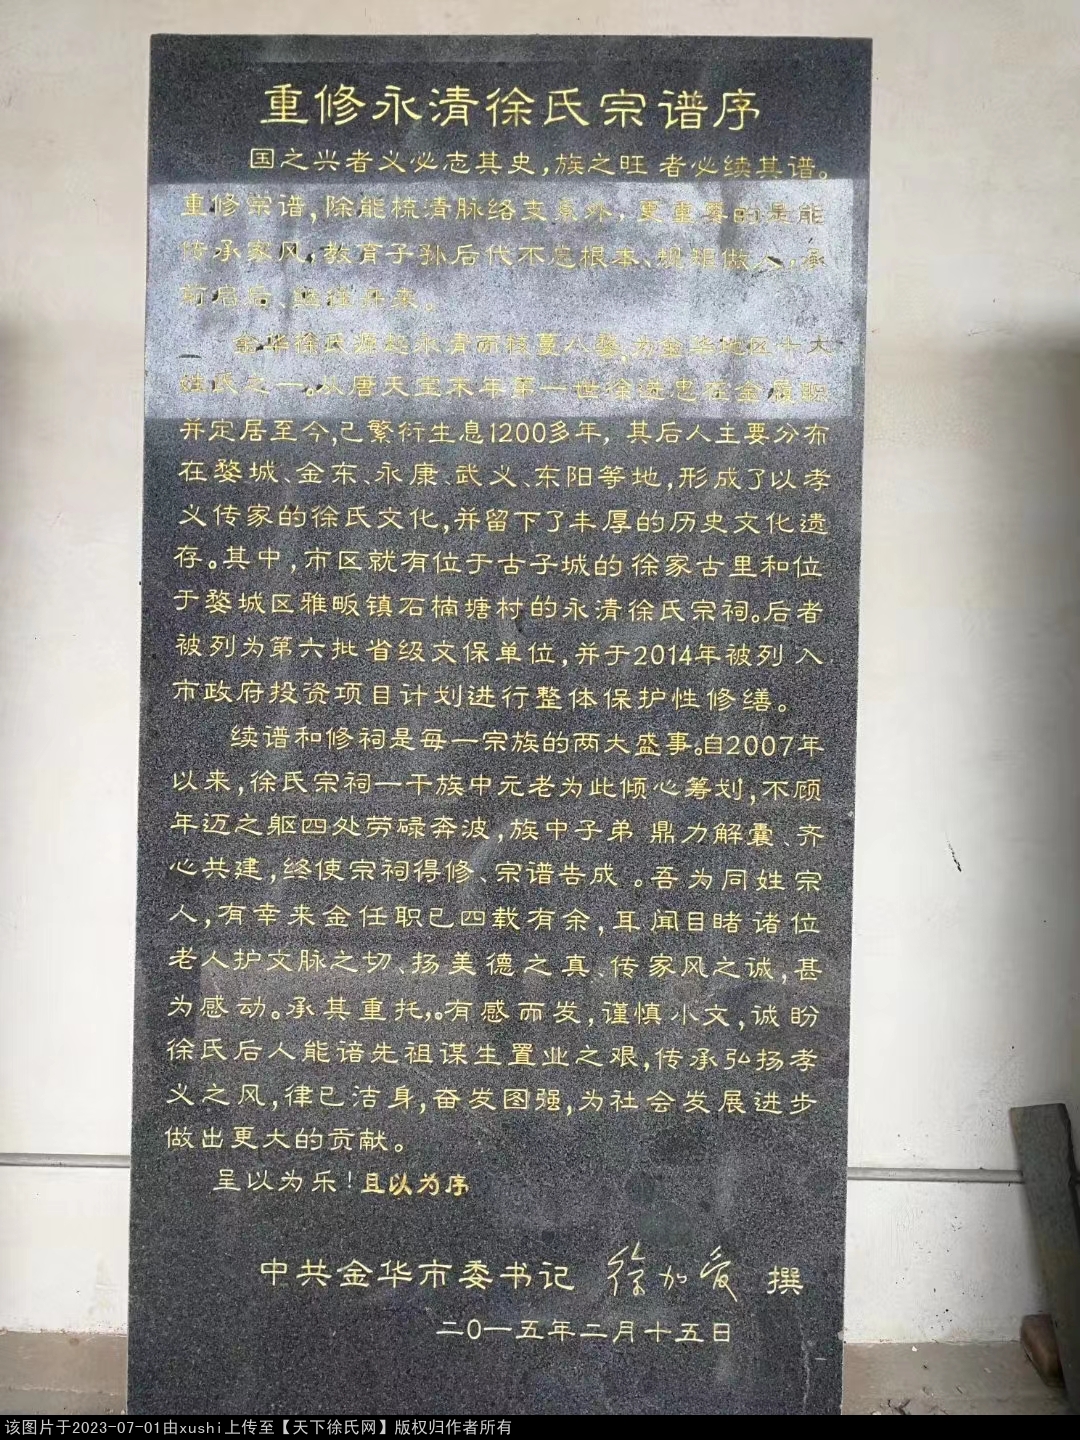 重修永清徐氏宗谱序
国之兴者义必志其史,族之旺 者必续其谱。
重修宗谱,除能梳清脉络支系外,更重要的是能
传承家风,教育子孙后代不忘根本、规矩做人,承
前启后、继往开来。
金华徐氏源起永清而枝蔓八婺,为金华地区十大
姓氏之一。从唐天宝末年第一世徐进忠在金履职
并定居至今,已繁衍生息1200多年, 其后人主要分布
在婺城、金东、永康、武义、东阳等地,形成了以孝
义传家的徐氏文化,并留下了丰厚的历史文化遗
存。其中,市区就有位于古子城的徐家古里和位
于婺城区雅畈镇石楠塘村的永清徐氏宗祠。后者
被列为第六批省级文保单位,并于2014年被列入
市政府投资项目计划进行整体保护性修缮。
续谱和修祠是每一宗族的两大盛事。自2007年
以来,徐氏宗祠一干族中元老为此倾心筹划,不顾
年迈之躯四处劳碌奔波,族中子弟鼎力解囊、齐
心共建,终使宗祠得修、宗谱告成。吾为同姓宗
人,有幸来金任职已四载有余,耳闻目睹诸位
老人护文脉之切、扬美德之真、传家风之诚,甚
为感动。承其重托,。有感而发,谨慎小文,诚盼
徐氏后人能谙先祖谋生置业之艰,传承弘扬孝
义之风,律已洁身,奋发图强,为社会发展进步
做出更大的贡献。
呈以为乐!且以为序
中共金华市委书记 徐加爱 撰
二0一五年二月十五日
该图片于2023-07-01由xushi上传至【天下徐氏网】版权归作者所有